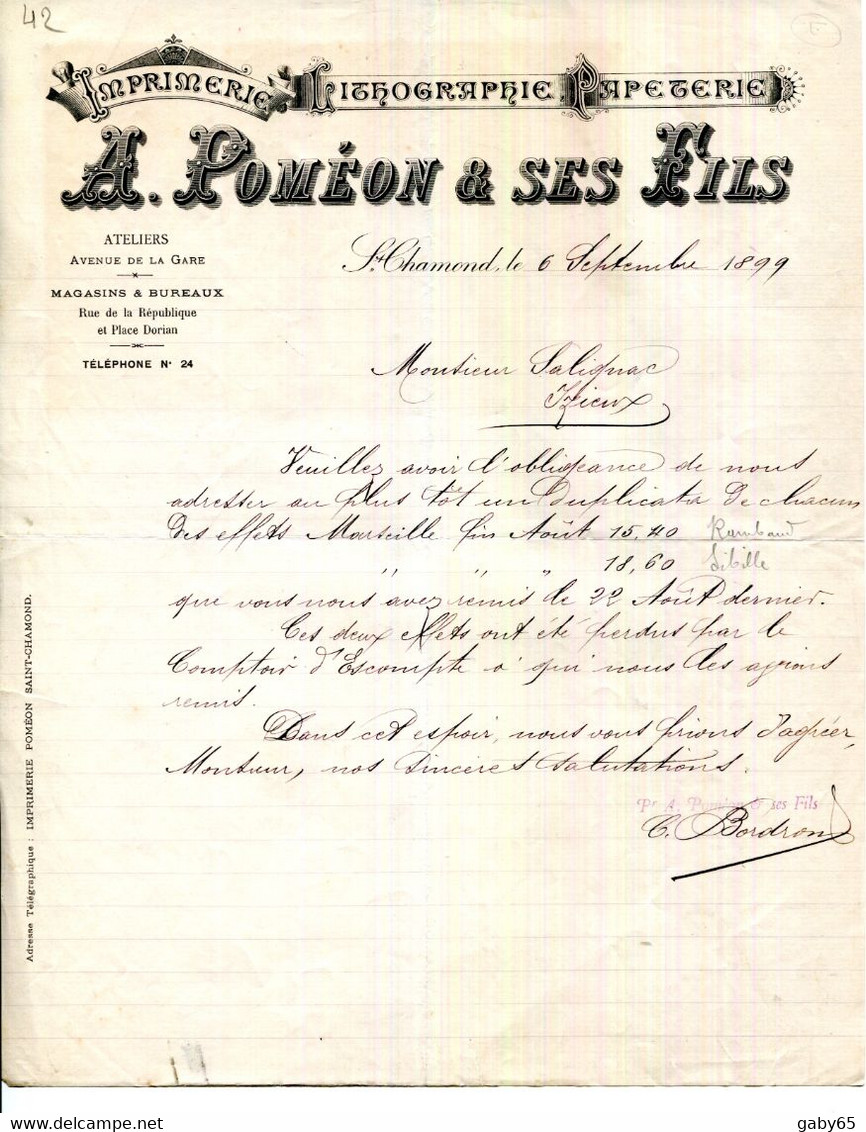 42
IMPRIMERIE LITHOGRAPHIE PAPETERIE
A. POMÉON & SES FILS
ATELIERS
AVENUE DE LA GARE
MAGASINS & BUREAUX
Rue de la République
et Place Dorian
TÉLÉPHONE N° 24
St Chamond, le 6 Septembre 1899
Monsieur Salignac
Izieux
Veuillez avoir l'obligeance de nous
adresser au plus tôt un duplicata de chacun
des effets Marseille fin Août 15,40 Rambaud
" " " 18,60 Sibille
que vous nous avez remis le 22 Août dernier.
Ces deux effets ont été perdus par le
Comptoir d'Escompte à qui nous les avions
remis.
Dans cet espoir, nous vous prions d'agréer,
Monsieur, nos sincères salutations.
Pr. A. Poméon & ses Fils
C. Bordron
Adresse Télégraphique : IMPRIMERIE POMÉON SAINT-CHAMOND.
gaby65